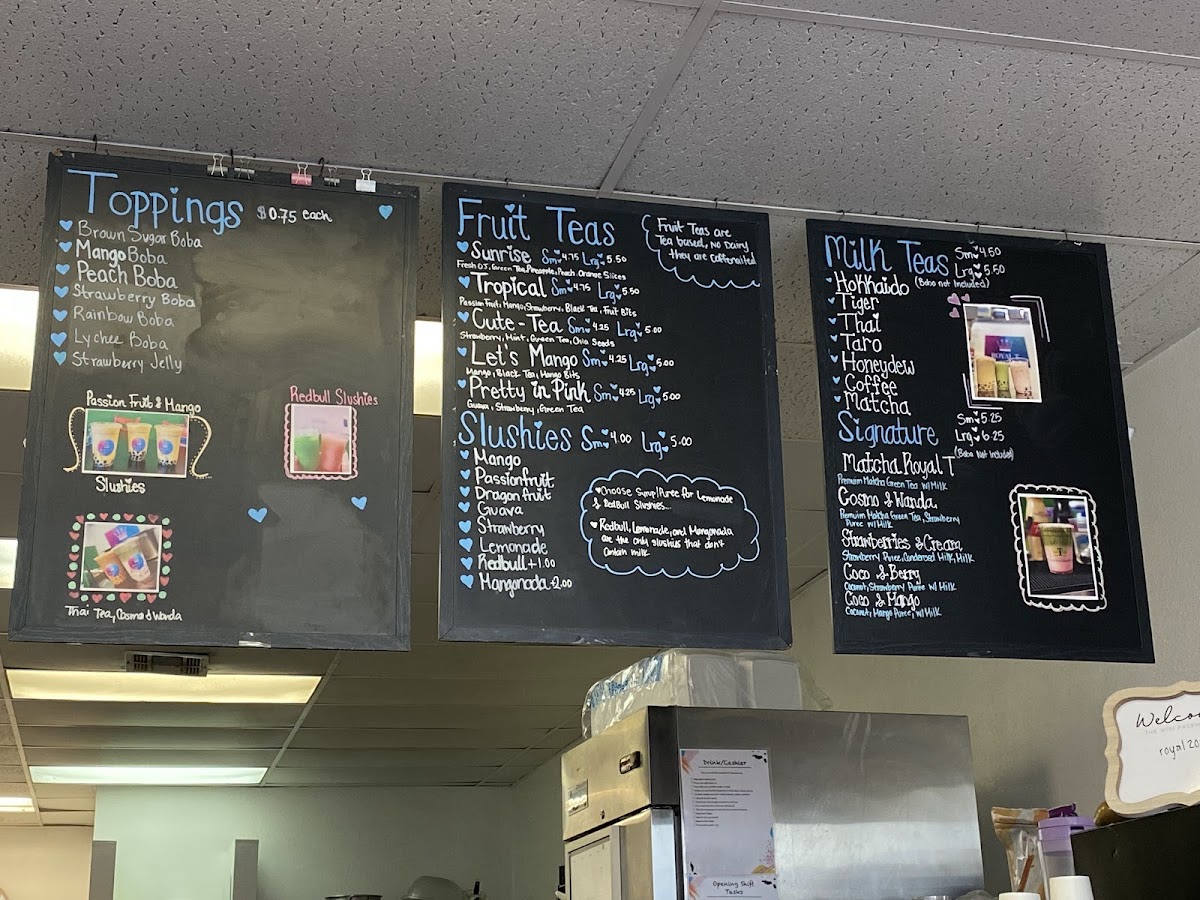 Toppings $0.75 each
Brown Sugar Boba
Mango Boba
Peach Boba
Strawberry Boba
Rainbow Boba
Lychee Boba
Strawberry Jelly
Passion Fruit & Mango
Slushies
Redbull Slushies
Thai Tea, Cosmo & Wanda
Fruit Teas
Fruit Teas are
Tea based, No Dairy
they are caffeinated
Sunrise Sm 4.75 Lrg 5.50
Fresh O.J, Green Tea, Pineapple, Peach, Orange Slices
Tropical Sm 4.75 Lrg 5.50
Passion Fruit, Mango, Strawberry, Black Tea, Fruit Bits
Cute-Tea Sm 4.25 Lrg 5.00
Strawberry, Mint, Green Tea, Chia Seeds
Let's Mango Sm 4.25 Lrg 5.00
Mango, Black Tea, Mango Bits
Pretty in Pink Sm 4.25 Lrg 5.00
Guava, Strawberry, Green Tea
Slushies Sm 4.00 Lrg 5.00
Mango
Passionfruit
Dragon fruit
Guava
Strawberry
Lemonade
Redbull +1.00
Mangonada +2.00
Choose Syrup/Puree for Lemonade
& RedBull Slushies...
Redbull, Lemonade, and Mangonada
are the only slushies that don't
contain milk
Milk Teas Sm 4.50
Lrg 5.50
(Boba not Included)
Hokkaido
Tiger
Thai
Taro
Honeydew
Coffee
Matcha
ROYAL T
Signature Sm 5.25
Lrg 6.25
(Boba Not Included)
Matcha Royal T
Premium Matcha Green Tea w/ Milk
Cosmo & Wanda
Premuim Matcha Green Tea, Strawberry
Puree w/ Milk
Strawberries & Cream
Strawberry Puree, Condensed Milk, Milk
Coco & Berry
Coconut, Strawberry Puree w/ Milk
Coco & Mango
Coconut, Mango Puree, w/ Milk
Drink/Cashier
Opening Shift
Tasks
royal20